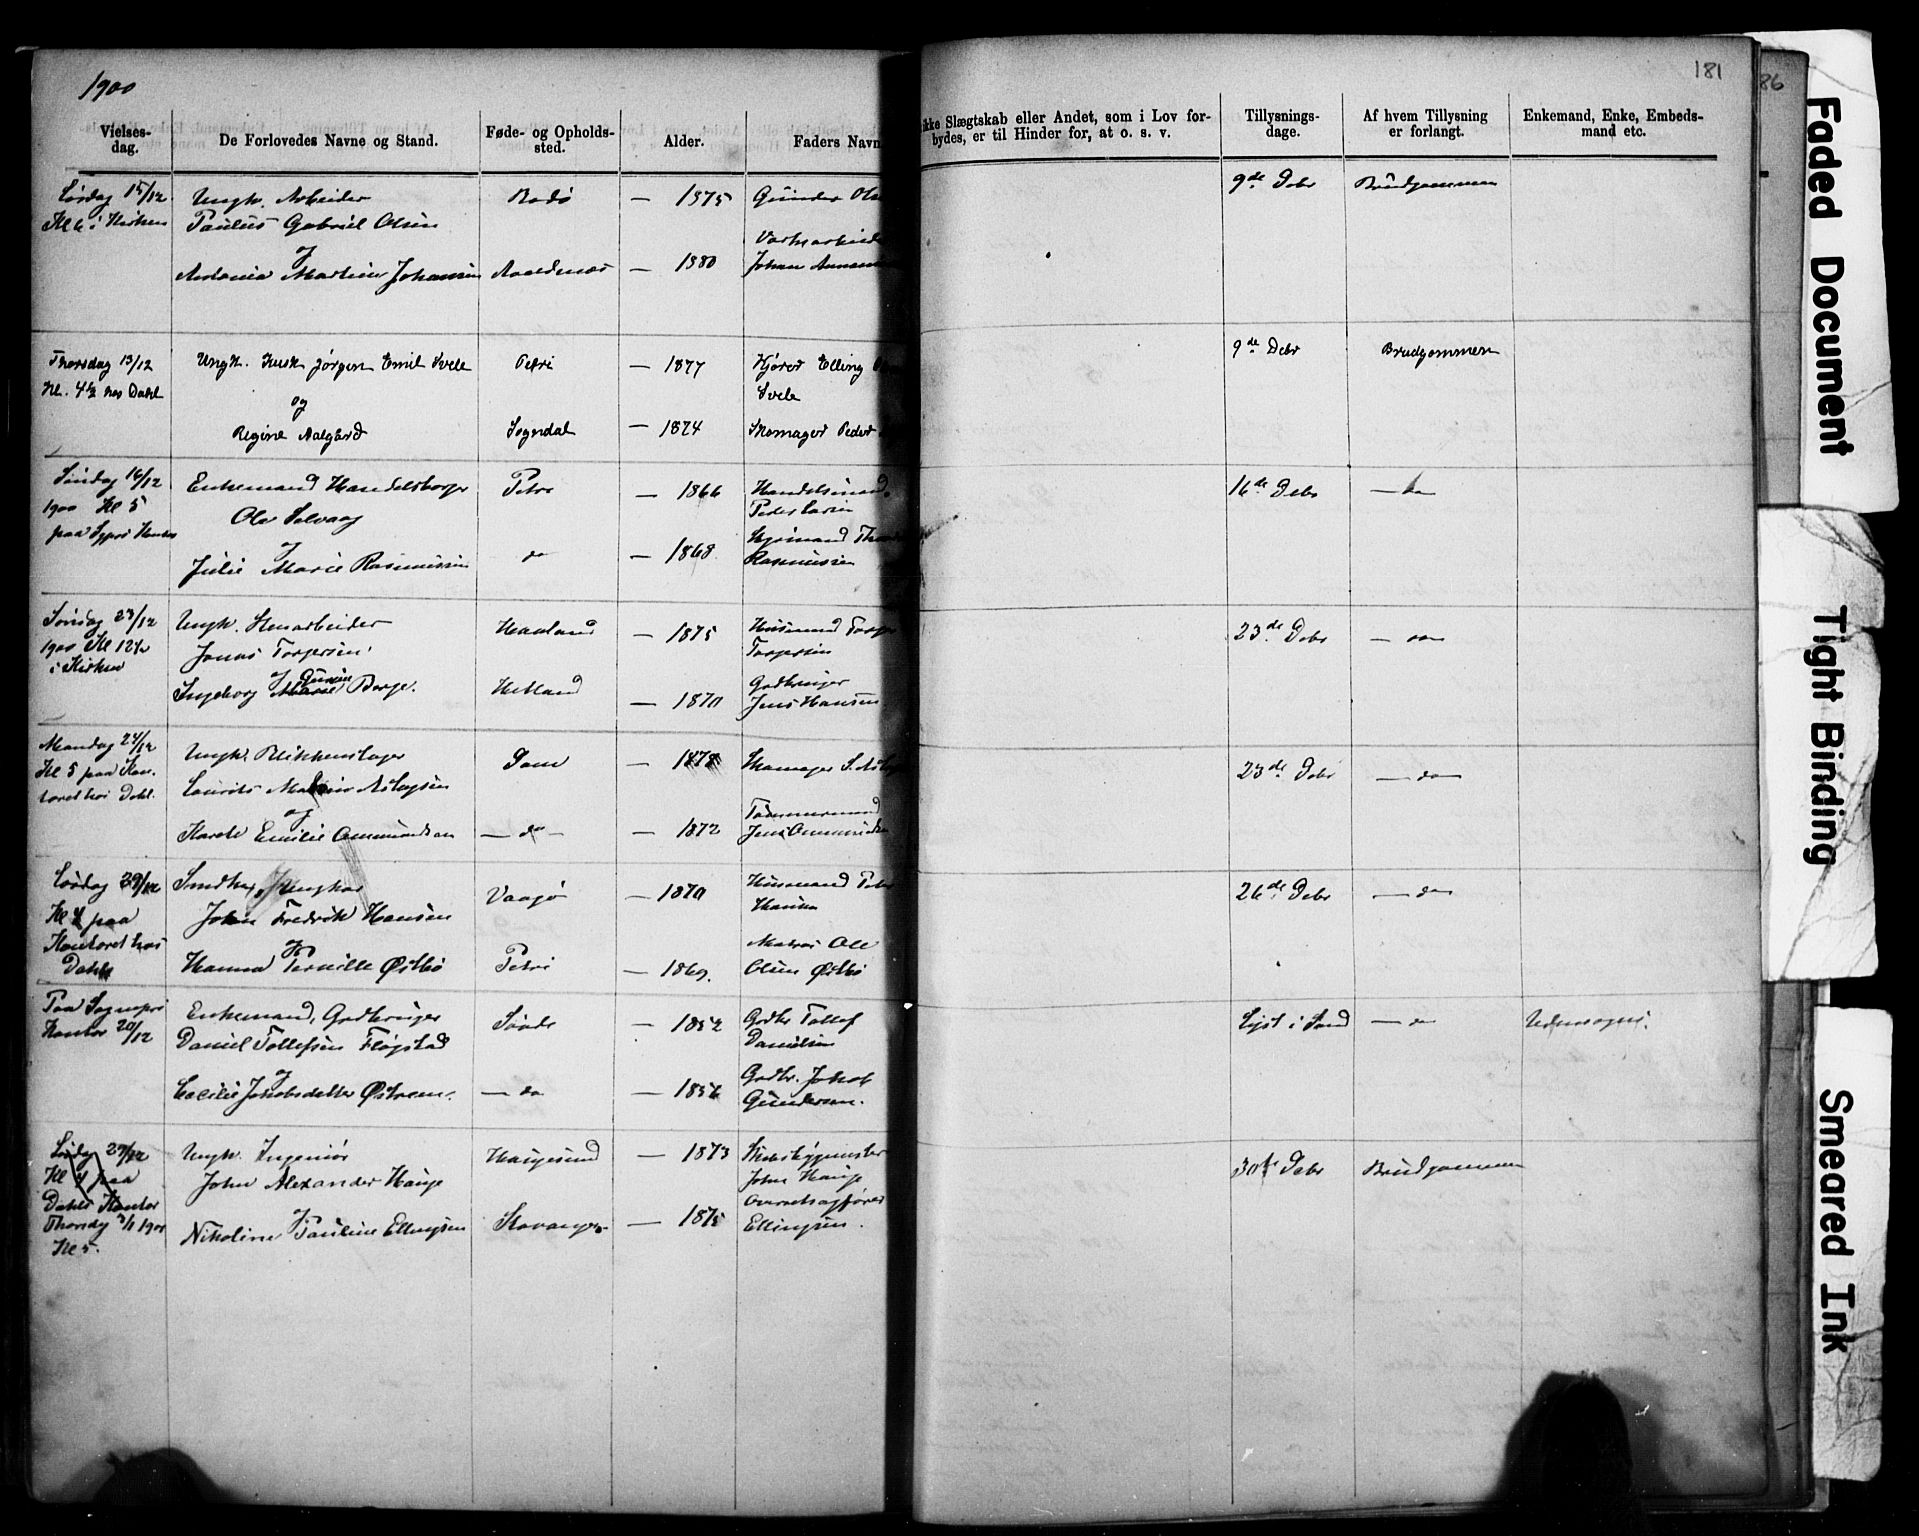 1900
181
86
Vielses-
dag.
De Forlovedes Navne og Stand.
Føde- og Opholds-
sted.
Alder.
Faders Navn
ikke Slægtskab eller Andet, som i Lov for-
bydes, er til Hinder for, at o. s. v.
Tillysnings-
dage.
Af hvem Tillysning
er forlangt.
Enkemand, Enke, Embeds-
mand etc.
Lørdag 15/12
Kl 6 i Kirken
Ungk. Arbeider
Paulus Gabriel Olsen
og
Antonia Martine Johansen
Bodø
— 1875
— 1880
Gunder Olse
Johan
9de Debr
Brudgommen
Thorsdag 13/12
Kl. 4½ hos Dahl
Ungk. Kusk Jørgen Emil Svele
og
Regine Aalgård
Petri
Sogndal
— 1877
— 1874
Kjører Elling
Svele
Skomager Peder
9de Debr
Brudgommen
Søndag 16/12
1900 Kl 5
Enkemand Handelsborger
Ole Selvaag
og
Julie Marie Rasmussen
Petri
do
— 1866
— 1868
Handelsmand
Peder Larsen
Rasmussen
16de Debr
— do
Søndag 23/12
1900 Kl 12½
i Kirken
Ungk. Stenarbeider
Jonas Torgersen
og
Ingeborg Gurine Berge.
Haaland
Hetland
— 1875
— 1870
Husmand Torger
Torgersen
Gaardbruger
Jens Hansen
23de Debr
— do
Mandag 24/12
Kl 5 paa Kon-
toret hos Dahl.
Ungk. Blikkenslager
Laurits Aslagsen
og
Karete Emilie Ommundsen
Dom
— do —
— 1878
— 1872
Skomager S. Aslag
Tømmermand
Jens Ommundsen
23de Debr
— do
Lørdag 29/12
Kl 4 paa
Kontoret hos
Dahl
Smedsv, Ungkar
Johan Fredrik Hansen
og
Hanna Pernille Østbø
Vaagø
Petri
— 1870
— 1869.
Husmand Peder
Hansen
Matros Ole
Olsen Østbø
26de Debr
— do
Paa Sognepr
Kontor 20/12
Enkemand, Gaardbruger
Daniel Tollefsen Fløgstad
og
Cecilie Jakobsdatter Østrem.
Sövde
— do
— 1852
— 1856
Gaardbr Tollef
Danielsen
Gaardbr. Jakob
Gundersen.
Lyst i Sand
— do
Udensogns.
Lørdag 29/12
Kl 4 paa
Dahls Kontor
Thorsdag 3/1 1901
Kl 5.
Ungk. Ingeniør
John Alexander Hauge
og
Nikoline Pauline Ellingsen
Haugesund
Stavanger
— 1873
— 1875
Skibsbyggmester
John Hauge
Overretssagfører
Ellingsen.
30te Debr
Brudgommen
Faded Document
Tight Binding
Smeared Ink